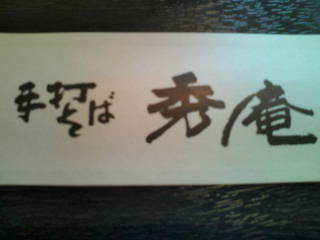 手打そば 秀庵